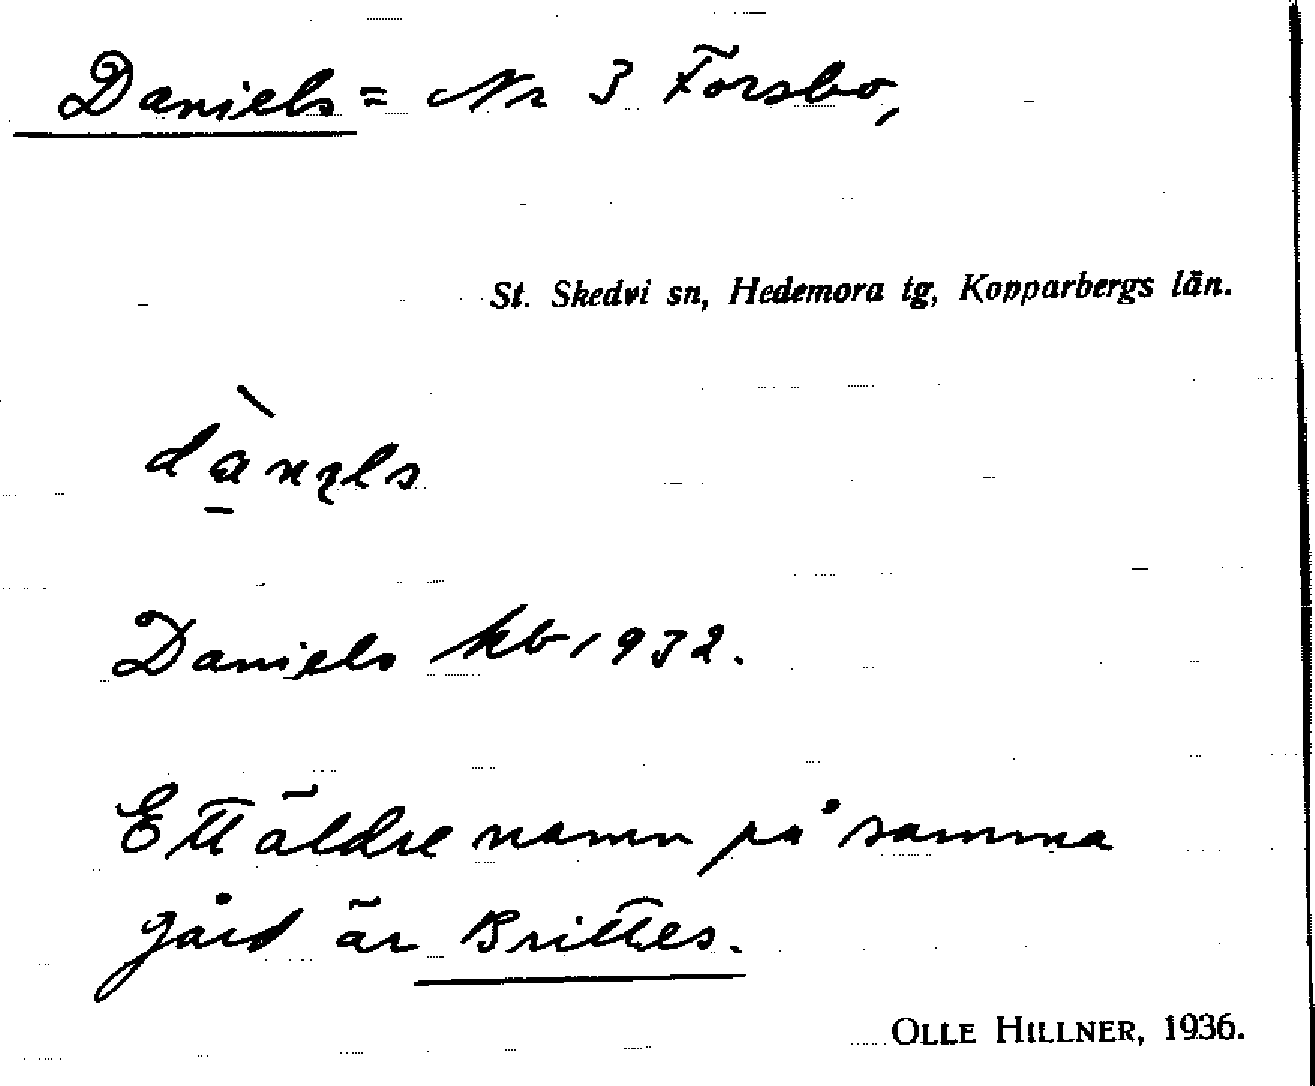 Daniels = Nr 3 Forsbo,
St. Skedvi sn, Hedemora tg, Kopparbergs län.
Daniels kb 1932.
Ett äldre namn på samma
gård är Brittes.
OLLE HILLNER, 1936.